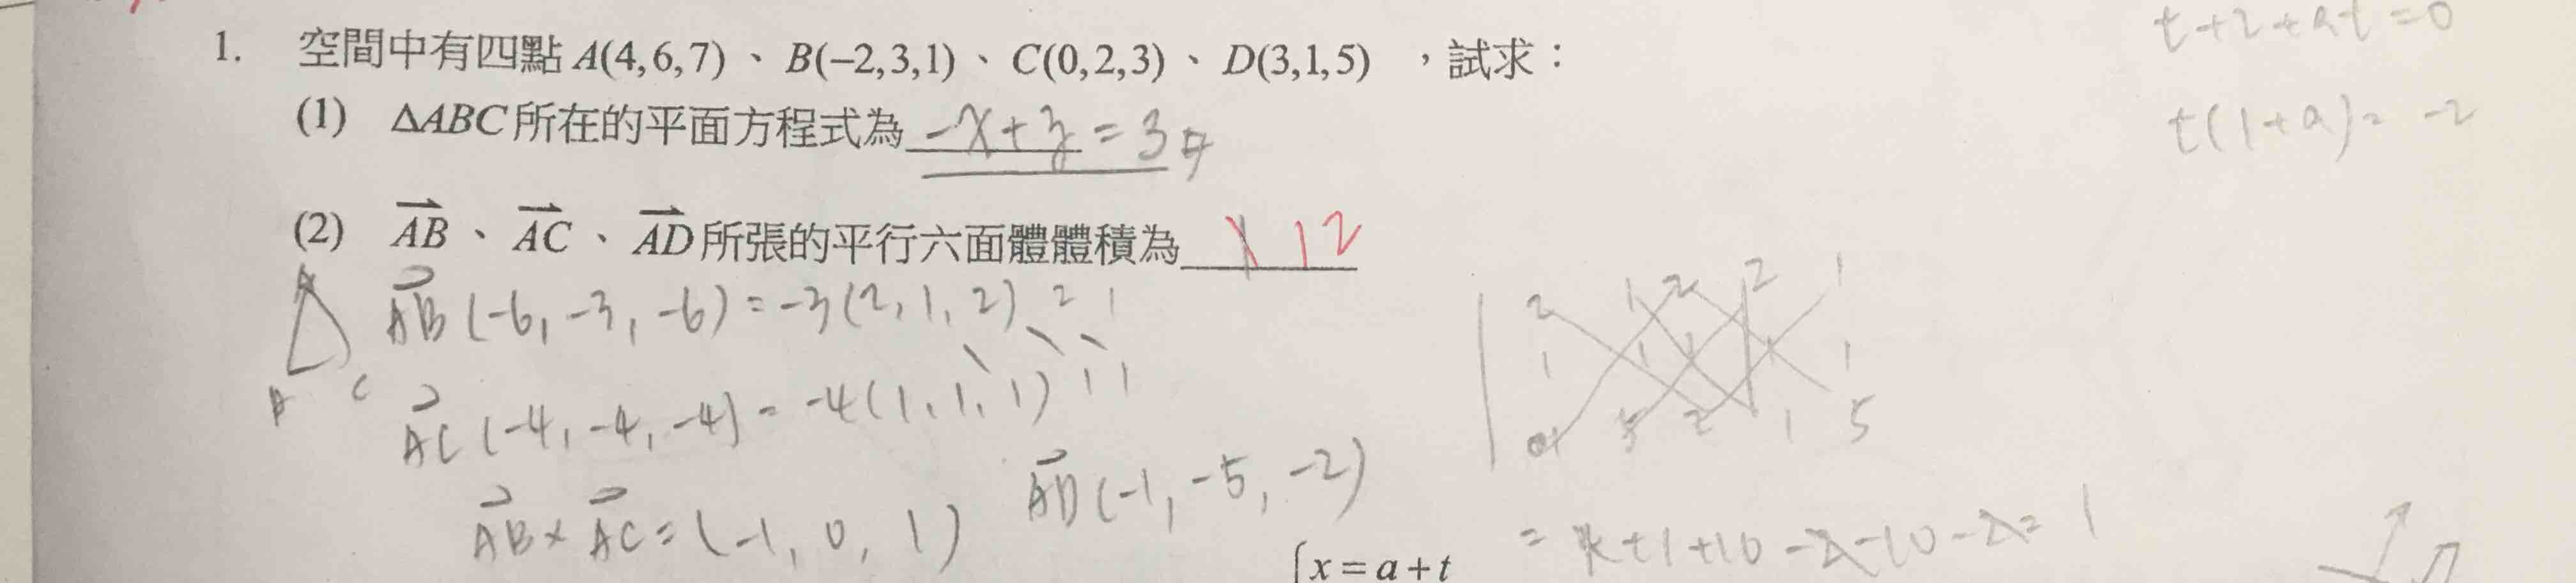 t+2+at=0
1. 空間中有四點 A(4,6,7)、B(−2,3,1)、C(0,2,3)、D(3,1,5) ,試求:
(1) ΔABC所在的平面方程式為 −x+z=3
t(1+a)=−2
(2) AB、AC、AD所張的平行六面體體積為 12
A
B C
AB(−6,−3,−6)=−3(2,1,2) 2 1
AC(−4,−4,−4)=−4(1,1,1) 1 1
2 1 2 2 1
1 1 1 1 1
5 2 1 5
AB×AC=(−1,0,1) AD(−1,−5,−2)
+1+10−2−10−2=1
x=a+t